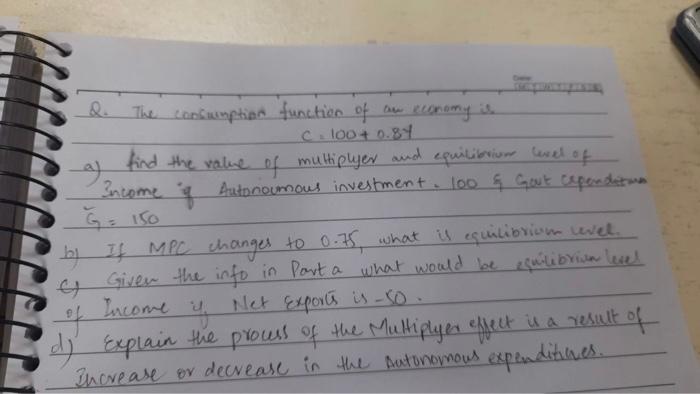 Q. The consumption function of an economy is
C = 100 + 0.8Y
a) find the value of multiplyer and equilibrium level of
Income if Autonoumous investment = 100 & Govt expenditure
G = 150
b) If MPC changes to 0.75, what is equilibrium level.
c) Given the info in Part a what would be equilibrium level
of Income if Net Exports is -50.
d) Explain the process of the Multiplyer effect is a result of
Increase or decrease in the Autonomous expenditures.